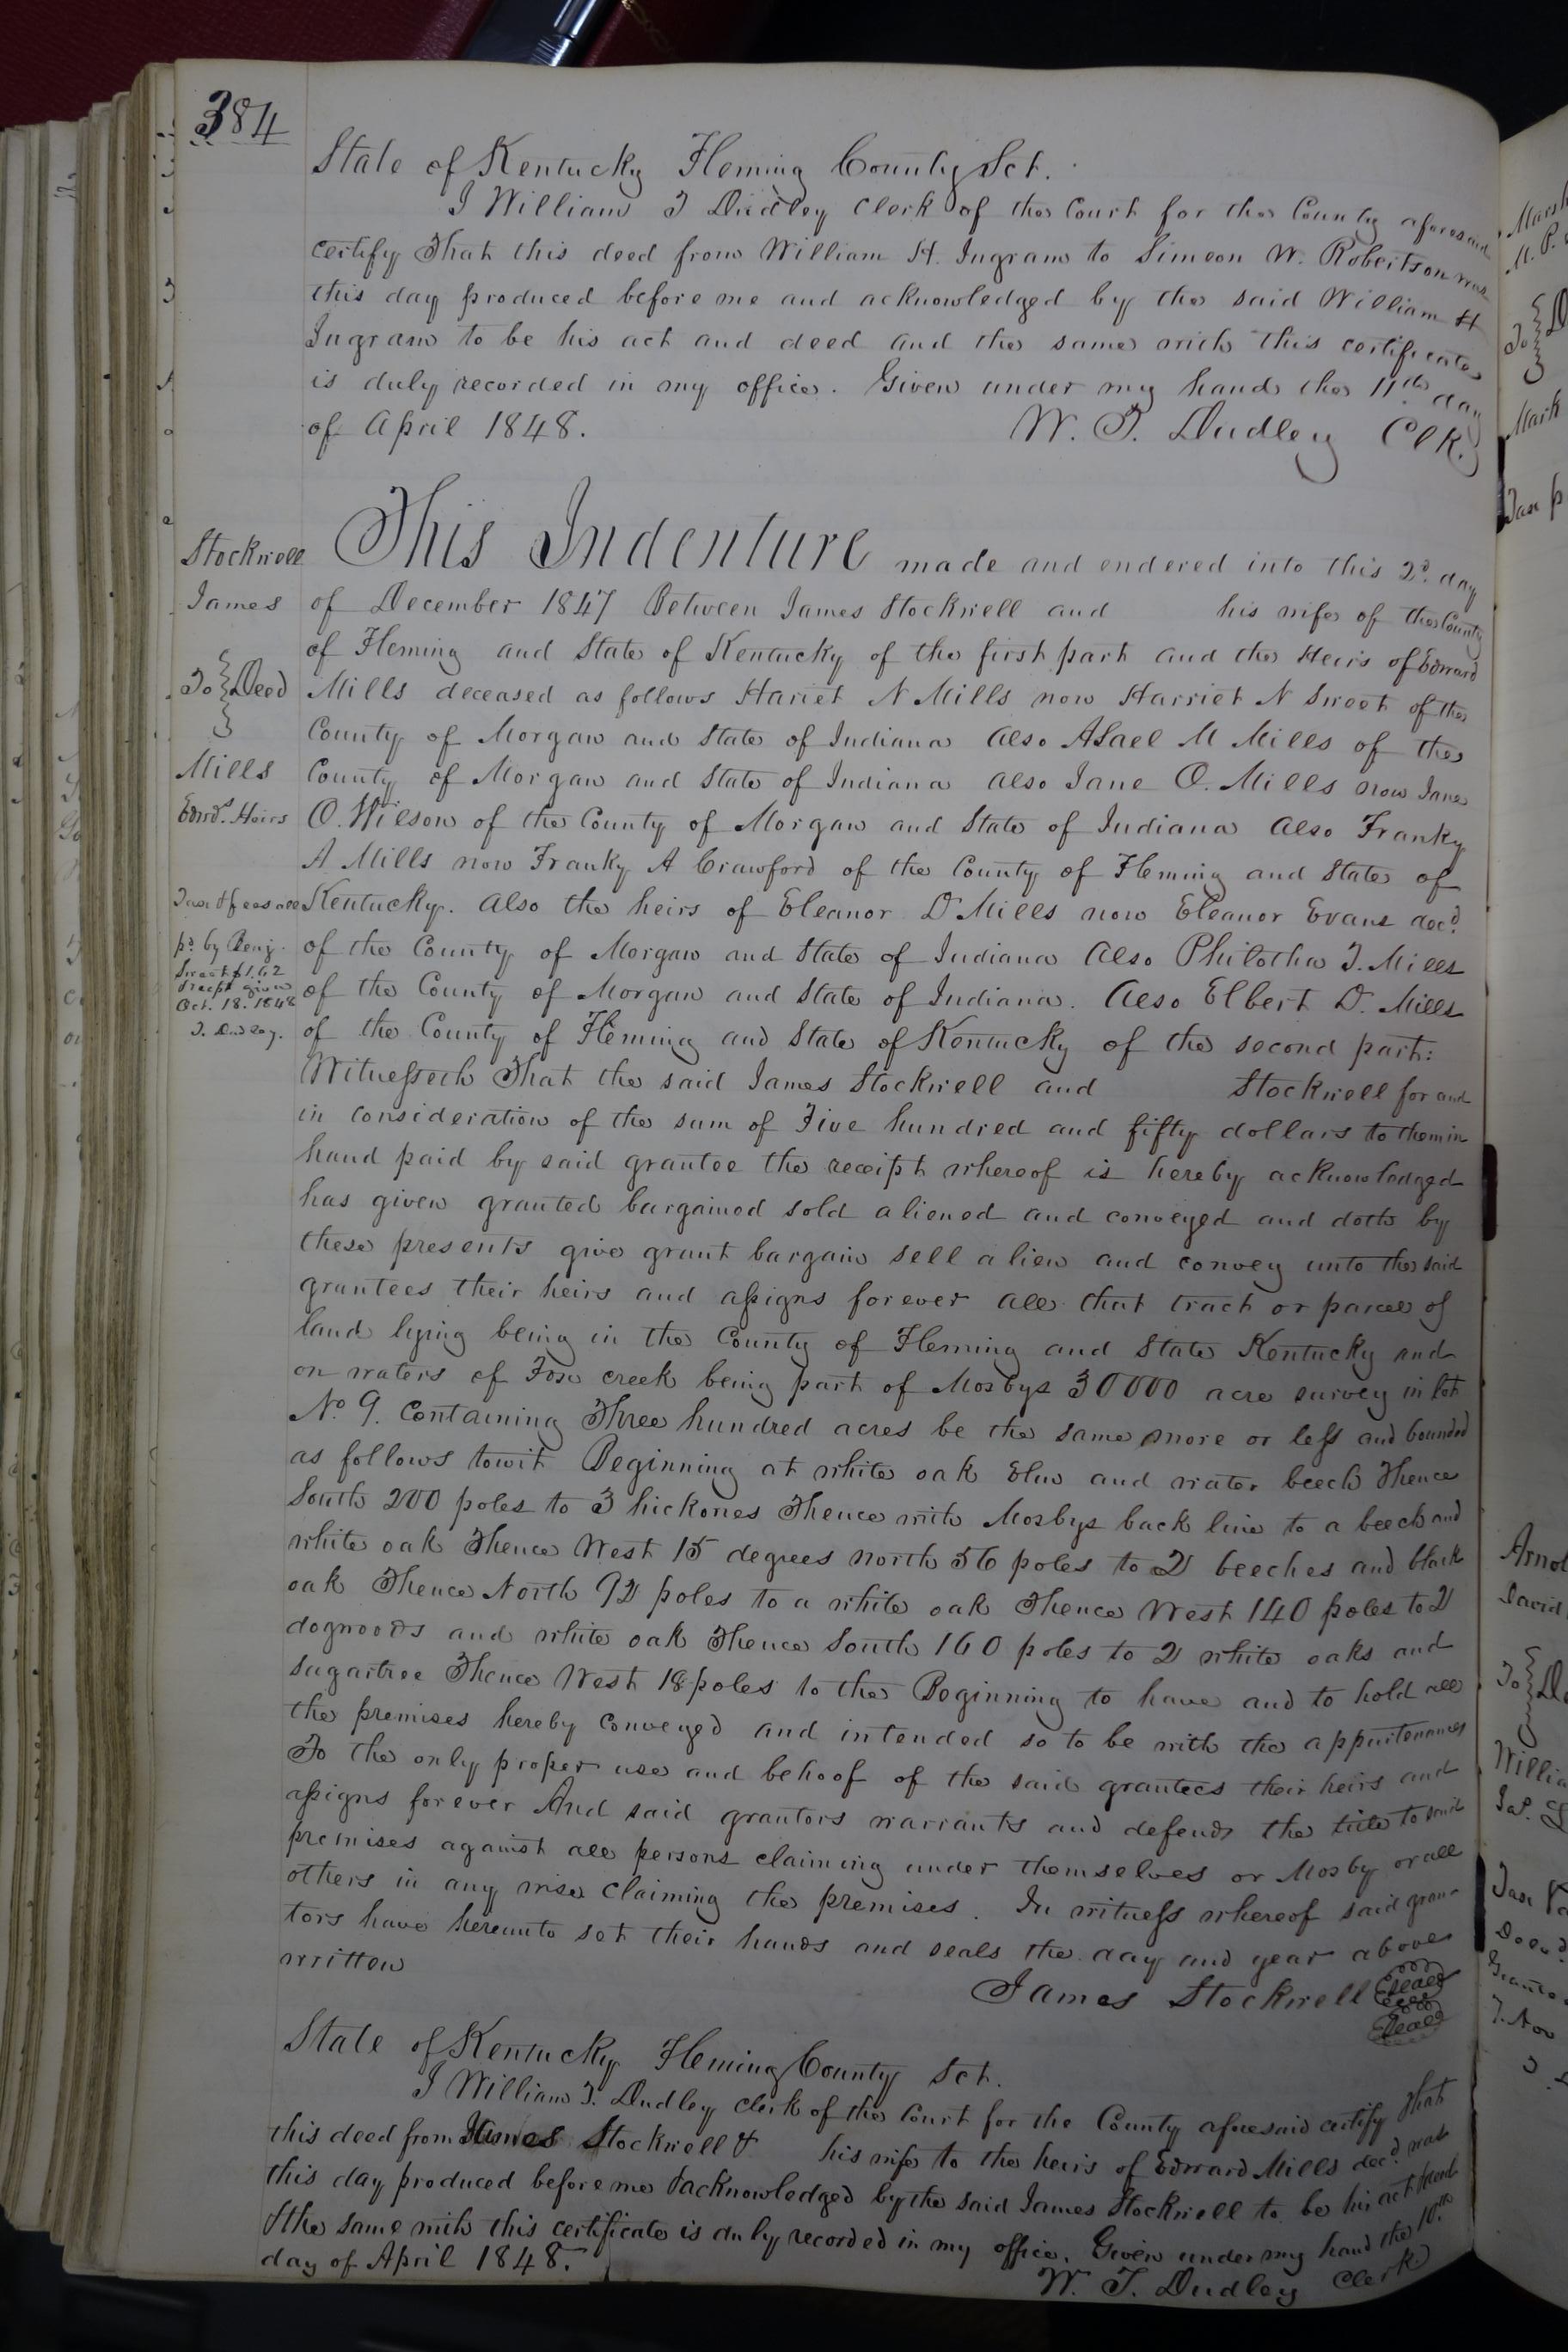 384
State of Kentucky Fleming County Sct.
I William T Dudley Clerk of the Court for the County aforesaid
certify That this deed from William H. Ingram to Simeon W. Robertson was
this day produced before me and acknowledged by the said William H
Ingram to be his act and deed and the same with this certificate
is duly recorded in my office. Given under my hand the 11th day
of April 1848.
W. T. Dudley Clk.
Stockwell
James
To Deed
Mills
Edwd. Heirs
Tax & fees all
pd. by Benj.
Sweet $1.62
Receipt given
Oct. 18. 1848
T. Dudley.
This Indenture made and endered into this 2d. day
of December 1847 Between James Stockwell and his wife of the County
of Fleming and State of Kentucky of the first part and the Heirs of Edward
Mills deceased as follows Hariet N Mills now Harriet N Sweet of the
County of Morgan and State of Indiana Also Asael M Mills of the
County of Morgan and State of Indiana also Jane O. Mills now Jane
O. Wilson of the County of Morgan and State of Indiana Also Franky
A Mills now Franky A Crawford of the County of Fleming and State of
Kentucky. Also the heirs of Eleanor D Mills now Eleanor Evans decd.
of the County of Morgan and State of Indiana Also Philotha T. Mills
of the County of Morgan and State of Indiana. Also Elbert D. Mills
of the County of Fleming and State of Kentucky of the second part:
Witnesseth That the said James Stockwell and Stockwell for and
in consideration of the sum of Five hundred and fifty dollars to them in
hand paid by said grantee the receipt whereof is hereby acknowledged
has given granted bargained sold aliened and conveyed and doth by
these presents give grant bargain sell alien and convey unto the said
grantees their heirs and assigns forever all that tract or parcel of
land lying being in the County of Fleming and State Kentucky and
on waters of Fox creek being part of Mosbys 30000 acre survey in lot
No. 9. Containing Three hundred acres be the same more or less and bounded
as follows towit Beginning at white oak Elm and water beech Thence
South 200 poles to 3 hickories Thence with Mosbys back line to a beech and
white oak Thence West 15 degrees north 56 poles to 2 beeches and black
oak Thence North 92 poles to a white oak Thence West 140 poles to 2
dogwoods and white oak Thence South 160 poles to 2 white oaks and
sugartree Thence West 18 poles to the Beginning to have and to hold all
the premises hereby conveyed and intended so to be with the appurtenances
To the only proper use and behoof of the said grantees their heirs and
assigns forever And said grantors warrants and defends the title to said
premises against all persons claiming under themselves or Mosby or all
others in any wise claiming the premises. In witness whereof said gran-
tors have hereunto set their hands and seals the day and year above
written
James Stockwell Seal
Seal
State of Kentucky Fleming County Sct.
I William T. Dudley Clerk of the Court for the County aforesaid certify That
this deed from James Stockwell & his wife to the heirs of Edward Mills decd. was
this day produced before me & acknowledged by the said James Stockwell to be his act & deed
& the same with this certificate is duly recorded in my office. Given under my hand the 10th
day of April 1848.
W. T. Dudley Clerk